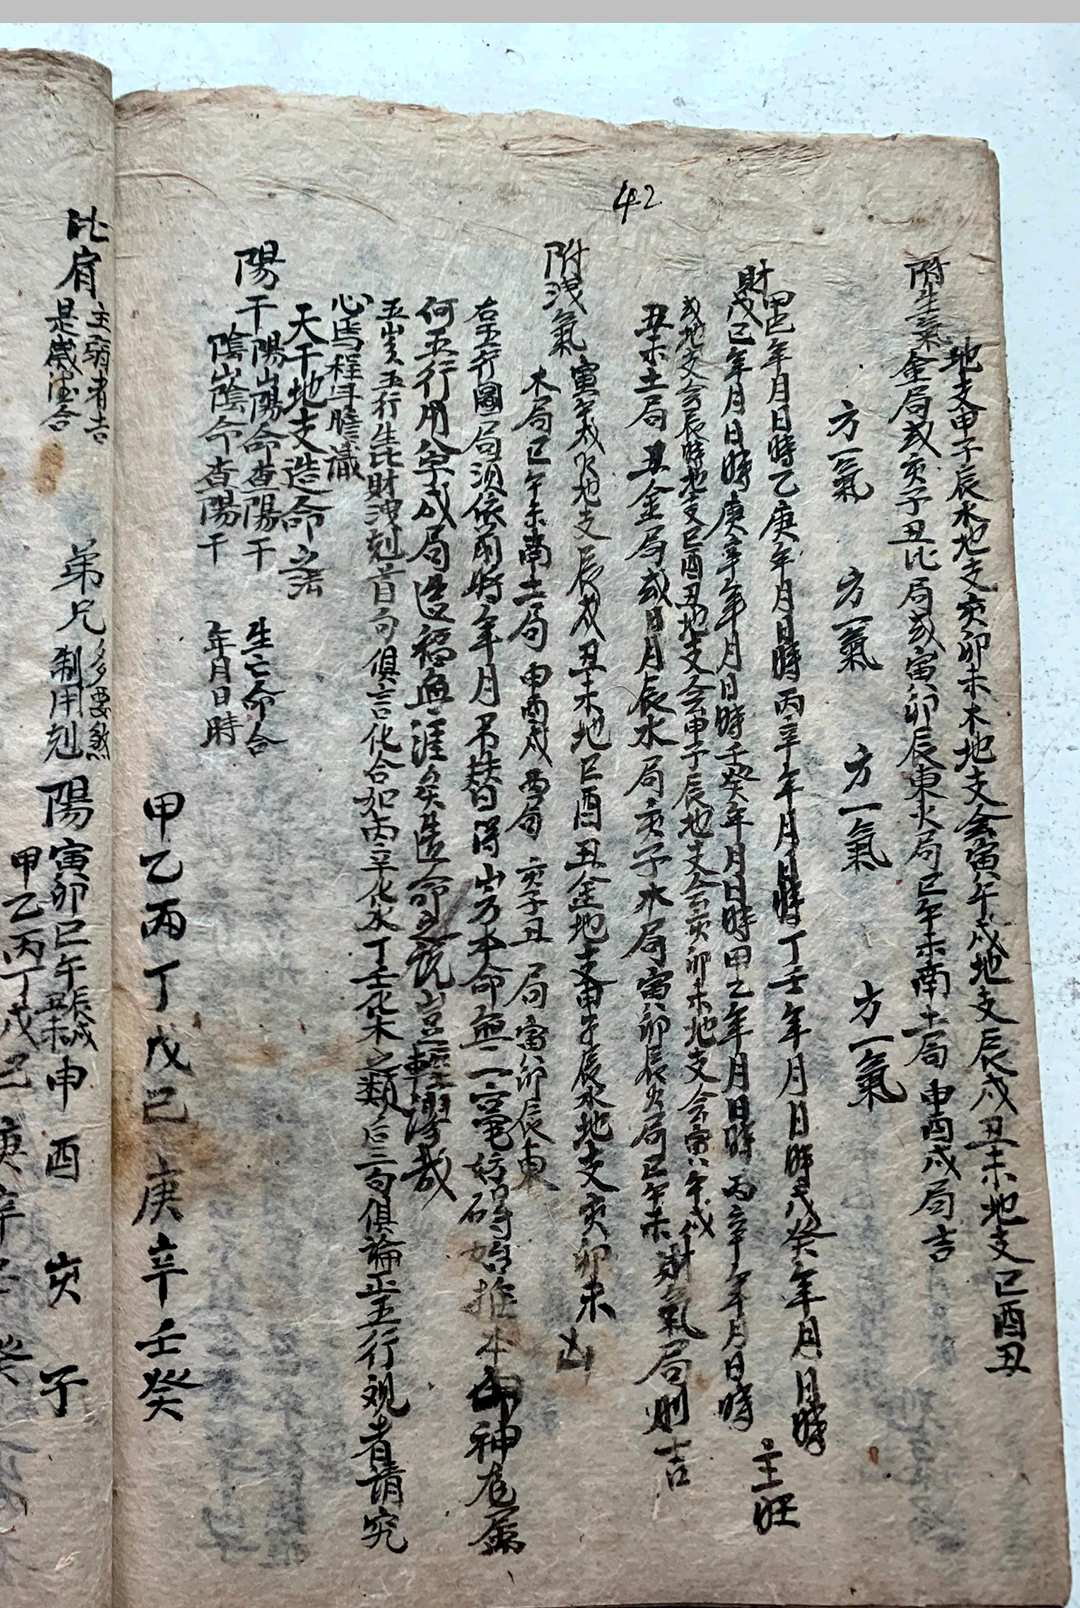 42
地支申子辰水地支亥卯未木地支会寅午戌地支辰戌丑未地支巳酉丑
附生氣金局或亥子丑北局或寅卯辰東火局巳午未南土局申酉戌局吉
方一氣 方一氣 方一氣 方一氣
甲巳年月日時乙庚年月日時丙辛年月日時丁壬年月日時戊癸年月日時
財戊巳年月日時庚辛年月日時壬癸年月日時甲乙年月日時丙辛年月日時 主旺
或地支会辰時地支巳酉丑地支会甲子辰地支会亥卯未地支会寅午戌
丑未土局丑金局或日月辰水局亥子水局寅卯辰火局巳午未財氣局則吉
附洩氣
寅午戌火地支辰戌丑未地巳酉丑金地支申子辰水地支亥卯未 凶
木局巳午未南土局申酉戌西局亥子丑局寅卯辰東
右五行國局須依用時年月吊替得山方本命無一毫妨碍始推本命神危屬
何五行用奈成局造福無涯矣造命之說豈輕謬哉
五岁五行生比財洩尅首句俱言化合如丙辛化水丁壬化木之類后三句俱論正五行观者請究
心焉程耳瞻識
天干地支造命之法
陽干陽山陽命查陽干 生亡命合
陰山陰命查陽干 年月日時
甲乙丙丁戊巳庚辛壬癸
比肩 主弱者吉 弟兄 多要煞
是歲德合 制用尅 陽寅卯巳午申酉亥子
甲乙丙丁戊巳庚辛癸